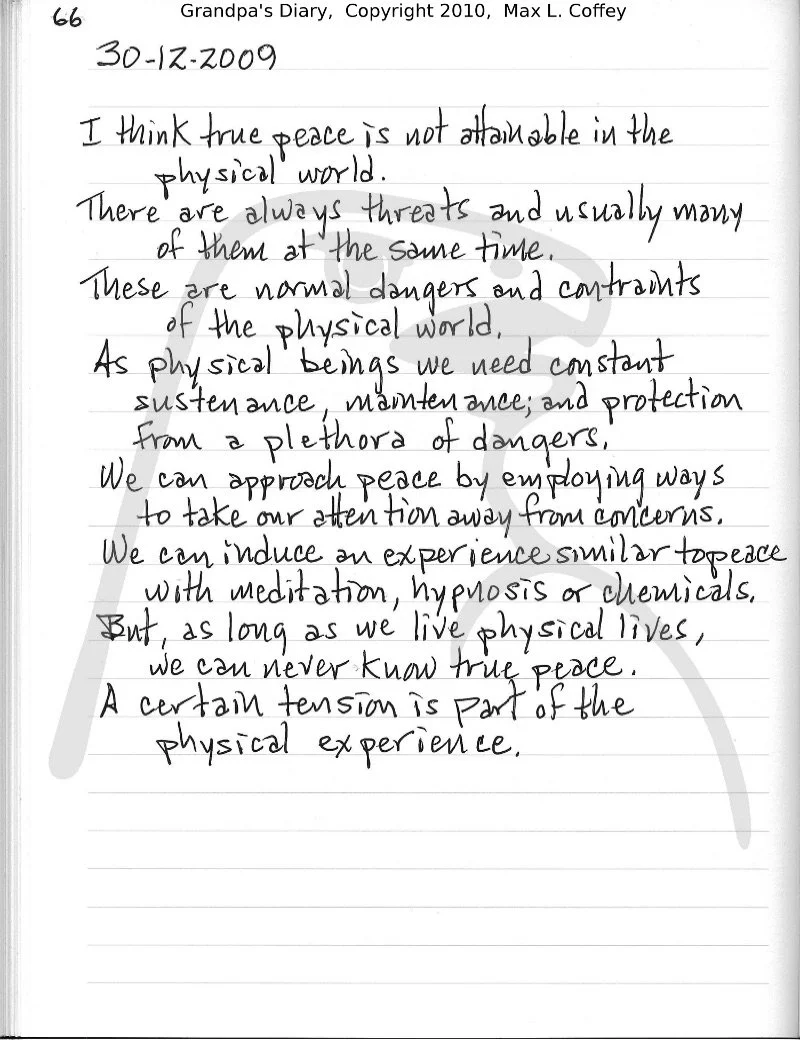 66
Grandpa's Diary, Copyright 2010, Max L. Coffey
30-12-2009
I think true peace is not attainable in the
physical world.
There are always threats and usually many
of them at the same time.
These are normal dangers and contraints
of the physical world.
As physical beings we need constant
sustenance, maintenance; and protection
from a plethora of dangers.
We can approach peace by employing ways
to take our attention away from concerns.
We can induce an experience similar to peace
with meditation, hypnosis or chemicals.
But, as long as we live physical lives,
we can never know true peace.
A certain tension is part of the
physical experience.